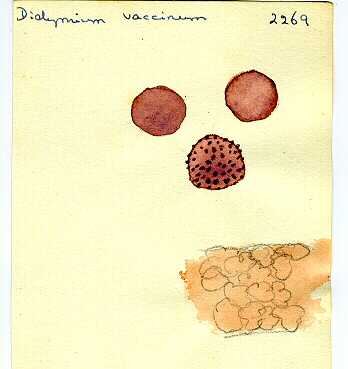 Didymium vaccinum 2269